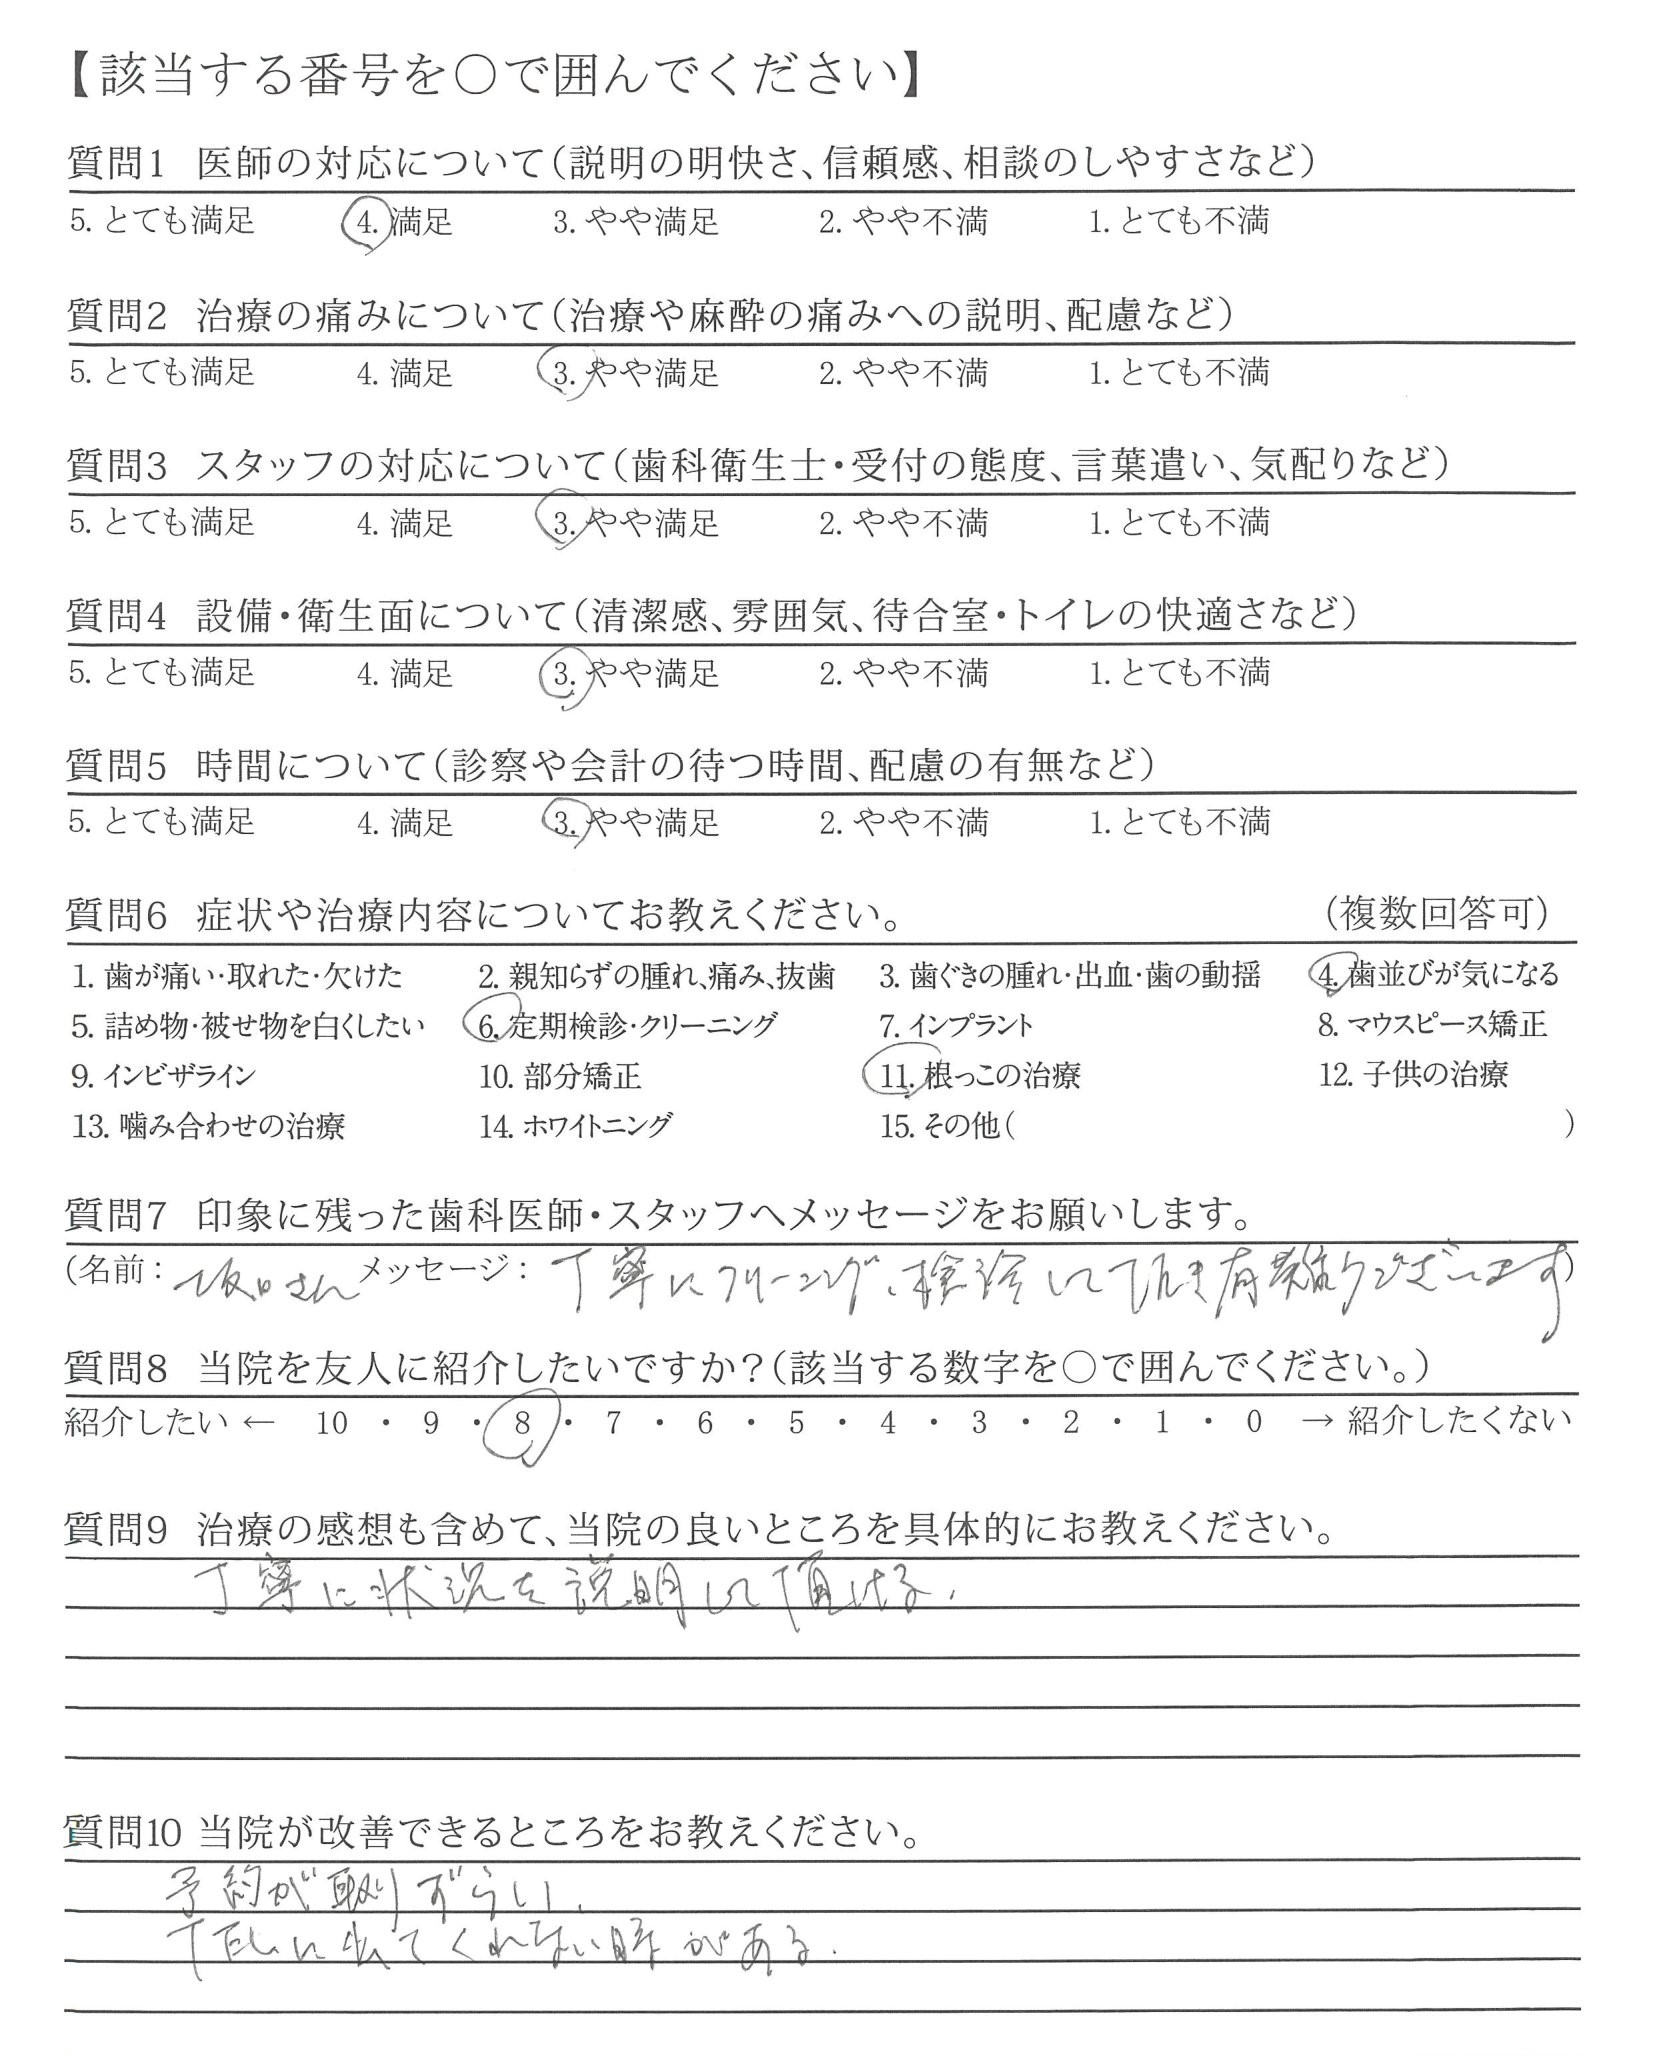 【該当する番号を○で囲んでください】
質問1 医師の対応について(説明の明快さ、信頼感、相談のしやすさなど)
5. とても満足 4. 満足 3. やや満足 2. やや不満 1. とても不満
質問2 治療の痛みについて(治療や麻酔の痛みへの説明、配慮など)
5. とても満足 4. 満足 3. やや満足 2. やや不満 1. とても不満
質問3 スタッフの対応について(歯科衛生士・受付の態度、言葉遣い、気配りなど)
5. とても満足 4. 満足 3. やや満足 2. やや不満 1. とても不満
質問4 設備・衛生面について(清潔感、雰囲気、待合室・トイレの快適さなど)
5. とても満足 4. 満足 3. やや満足 2. やや不満 1. とても不満
質問5 時間について(診察や会計の待つ時間、配慮の有無など)
5. とても満足 4. 満足 3. やや満足 2. やや不満 1. とても不満
質問6 症状や治療内容についてお教えください。 (複数回答可)
1. 歯が痛い・取れた・欠けた 2. 親知らずの腫れ、痛み、抜歯 3. 歯ぐきの腫れ・出血・歯の動揺 4. 歯並びが気になる
5. 詰め物・被せ物を白くしたい 6. 定期検診・クリーニング 7. インプラント 8. マウスピース矯正
9. インビザライン 10. 部分矯正 11. 根っこの治療 12. 子供の治療
13. 噛み合わせの治療 14. ホワイトニング 15. その他( )
質問7 印象に残った歯科医師・スタッフへメッセージをお願いします。
(名前: さん メッセージ: 丁寧にクリーニング、検診して頂き有難うございます)
質問8 当院を友人に紹介したいですか?(該当する数字を○で囲んでください。)
紹介したい ← 10 ・ 9 ・ 8 ・ 7 ・ 6 ・ 5 ・ 4 ・ 3 ・ 2 ・ 1 ・ 0 → 紹介したくない
質問9 治療の感想も含めて、当院の良いところを具体的にお教えください。
丁寧に状況を説明して頂ける。
質問10 当院が改善できるところをお教えください。
予約が取りずらい。
TELに出てくれない時がある。